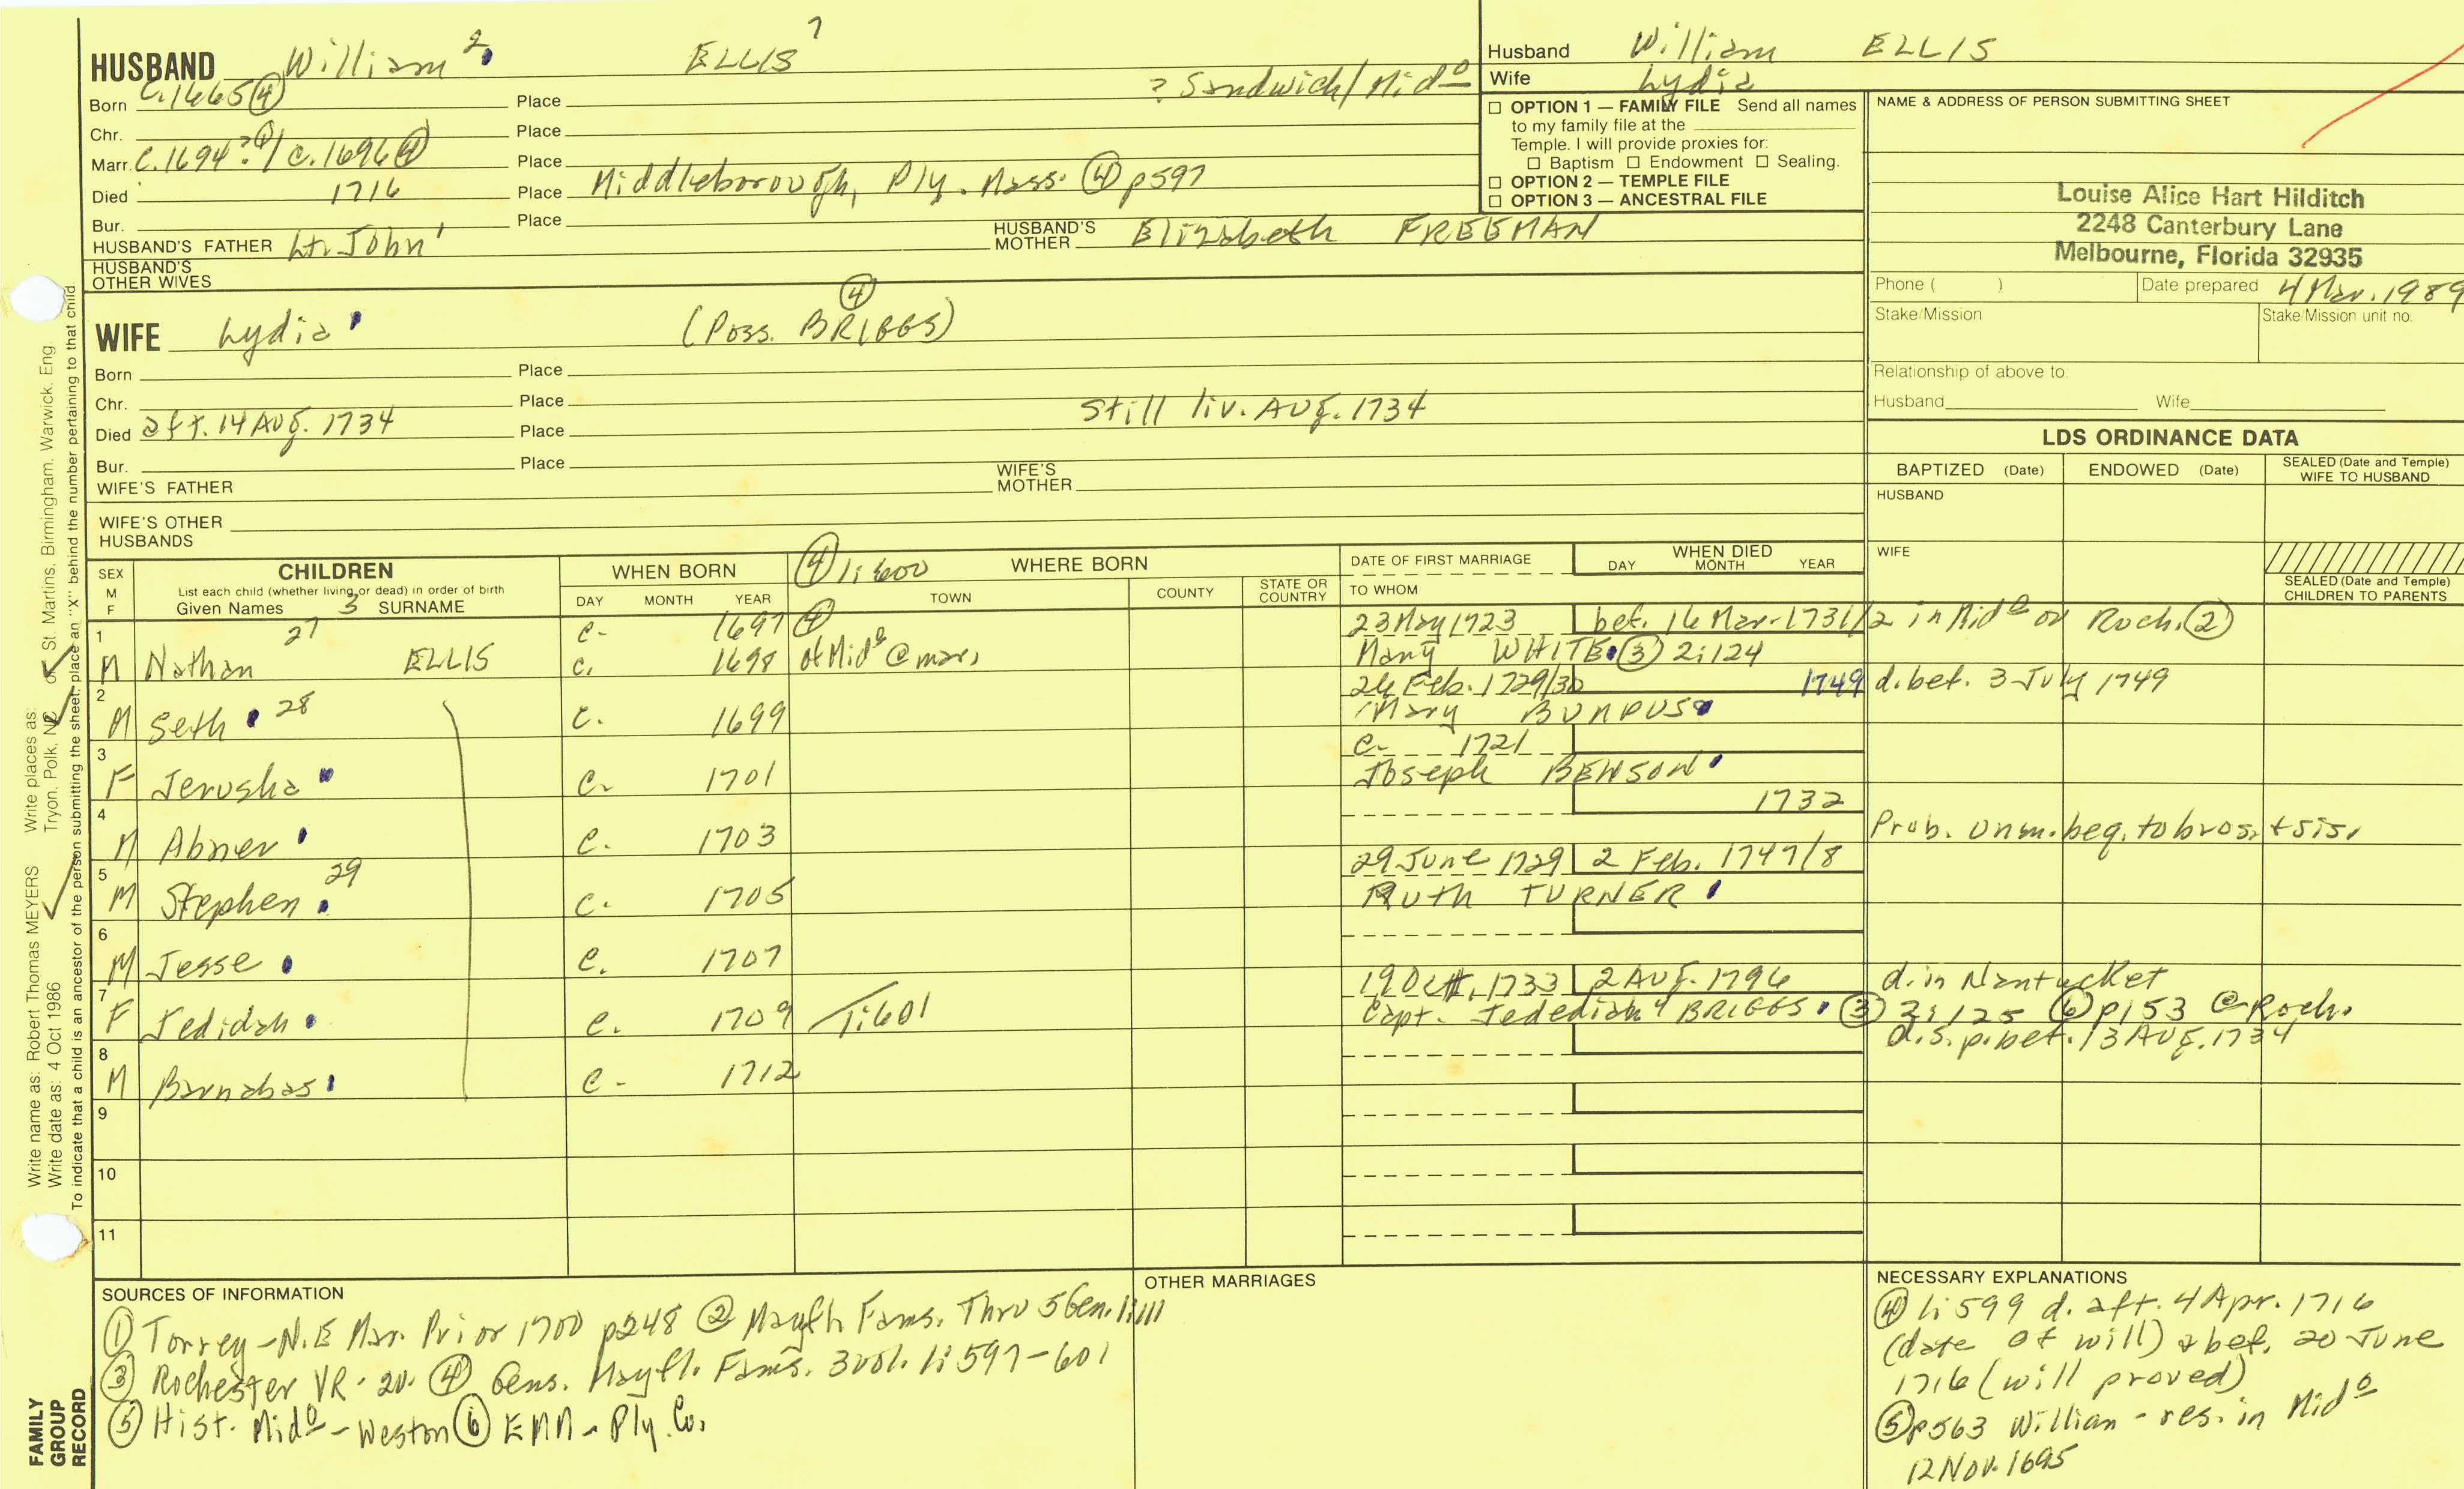 HUSBAND William 2 ELLIS 7
Born C. 1665 (4) Place ? Sandwich/Mid o
Chr. Place
Marr. C. 1694 ? (1) / c. 1696 (4) Place
Died 1716 Place Middleborough, Ply. Mass. (4) p597
Bur. Place
HUSBAND'S FATHER Lt. John 1 HUSBAND'S MOTHER Elizabeth FREEMAN
HUSBAND'S OTHER WIVES
WIFE Lydia (Poss. BRIGGS) (4)
Born Place
Chr. Place
Died aft. 14 Aug. 1734 Place Still liv. Aug. 1734
Bur. Place
WIFE'S FATHER WIFE'S MOTHER
WIFE'S OTHER HUSBANDS
Husband William ELLIS
Wife Lydia
☐ OPTION 1 — FAMILY FILE Send all names
to my family file at the
Temple. I will provide proxies for:
☐ Baptism ☐ Endowment ☐ Sealing.
☐ OPTION 2 — TEMPLE FILE
☐ OPTION 3 — ANCESTRAL FILE
NAME & ADDRESS OF PERSON SUBMITTING SHEET
Louise Alice Hart Hilditch
2248 Canterbury Lane
Melbourne, Florida 32935
Phone ( ) Date prepared 4 Mar. 1989
Stake/Mission Stake/Mission unit no.
Relationship of above to:
Husband Wife
LDS ORDINANCE DATA
BAPTIZED (Date) ENDOWED (Date) SEALED (Date and Temple) WIFE TO HUSBAND
HUSBAND
WIFE
SEALED (Date and Temple) CHILDREN TO PARENTS
SEX M F
CHILDREN
List each child (whether living or dead) in order of birth
Given Names 3 SURNAME
WHEN BORN
DAY MONTH YEAR
(4) 1:600 WHERE BORN
TOWN COUNTY STATE OR COUNTRY
DATE OF FIRST MARRIAGE
TO WHOM
WHEN DIED
DAY MONTH YEAR
1 27 c. 1697 (4) 23 May 1723 bef. 16 Mar. 1731/2 in Mid o or Roch. (2)
M Nathan ELLIS c. 1698 of Mid o @ mar. Mary WHITE (3) 2:124
2 26 Feb. 1729/30 1749 d. bef. 3 July 1749
M Seth 28 c. 1699 Mary BUMPUS
3 c. 1721
F Jerusha c. 1701 Joseph BENSON
4 1732
M Abner c. 1703 Prob. unm. beq. to bros. + sis.
5 29 29 June 1729 2 Feb. 1747/8
M Stephen c. 1705 Ruth TURNER
6
M Jesse c. 1707
7 19 Oct. 1733 2 Aug. 1796 d. in Nantucket
F Jedidah c. 1709 1:601 Capt. Jedediah 4 BRIGGS (3) 2:125 (6) p153 @ Roch.
8 d.s.p. bet. 13 Aug. 1734
M Barnabas c. 1712
9
10
11
SOURCES OF INFORMATION
(1) Torrey - N.E Mar. Prior 1700 p248 (2) Mayfl. Fams. Thru 5 Gen. 1:111
(3) Rochester VR. 2v. (4) Gens. Mayfl. Fams. 3 vol. 1:597-601
(5) Hist. Mid o - Weston (6) EMM - Ply. Co.
OTHER MARRIAGES
NECESSARY EXPLANATIONS
(4) 1:599 d. aft. 4 Apr. 1716
(date of will) & bef. 20 June
1716 (will proved)
(5) p563 William - res. in Mid o
12 Nov. 1695
Write name as: Robert Thomas MEYERS Write places as:
Write date as: 4 Oct 1986 Tryon, Polk, NC or St. Martins, Birmingham, Warwick, Eng.
To indicate that a child is an ancestor of the person submitting the sheet, place an "X" behind the number pertaining to that child.
FAMILY GROUP RECORD